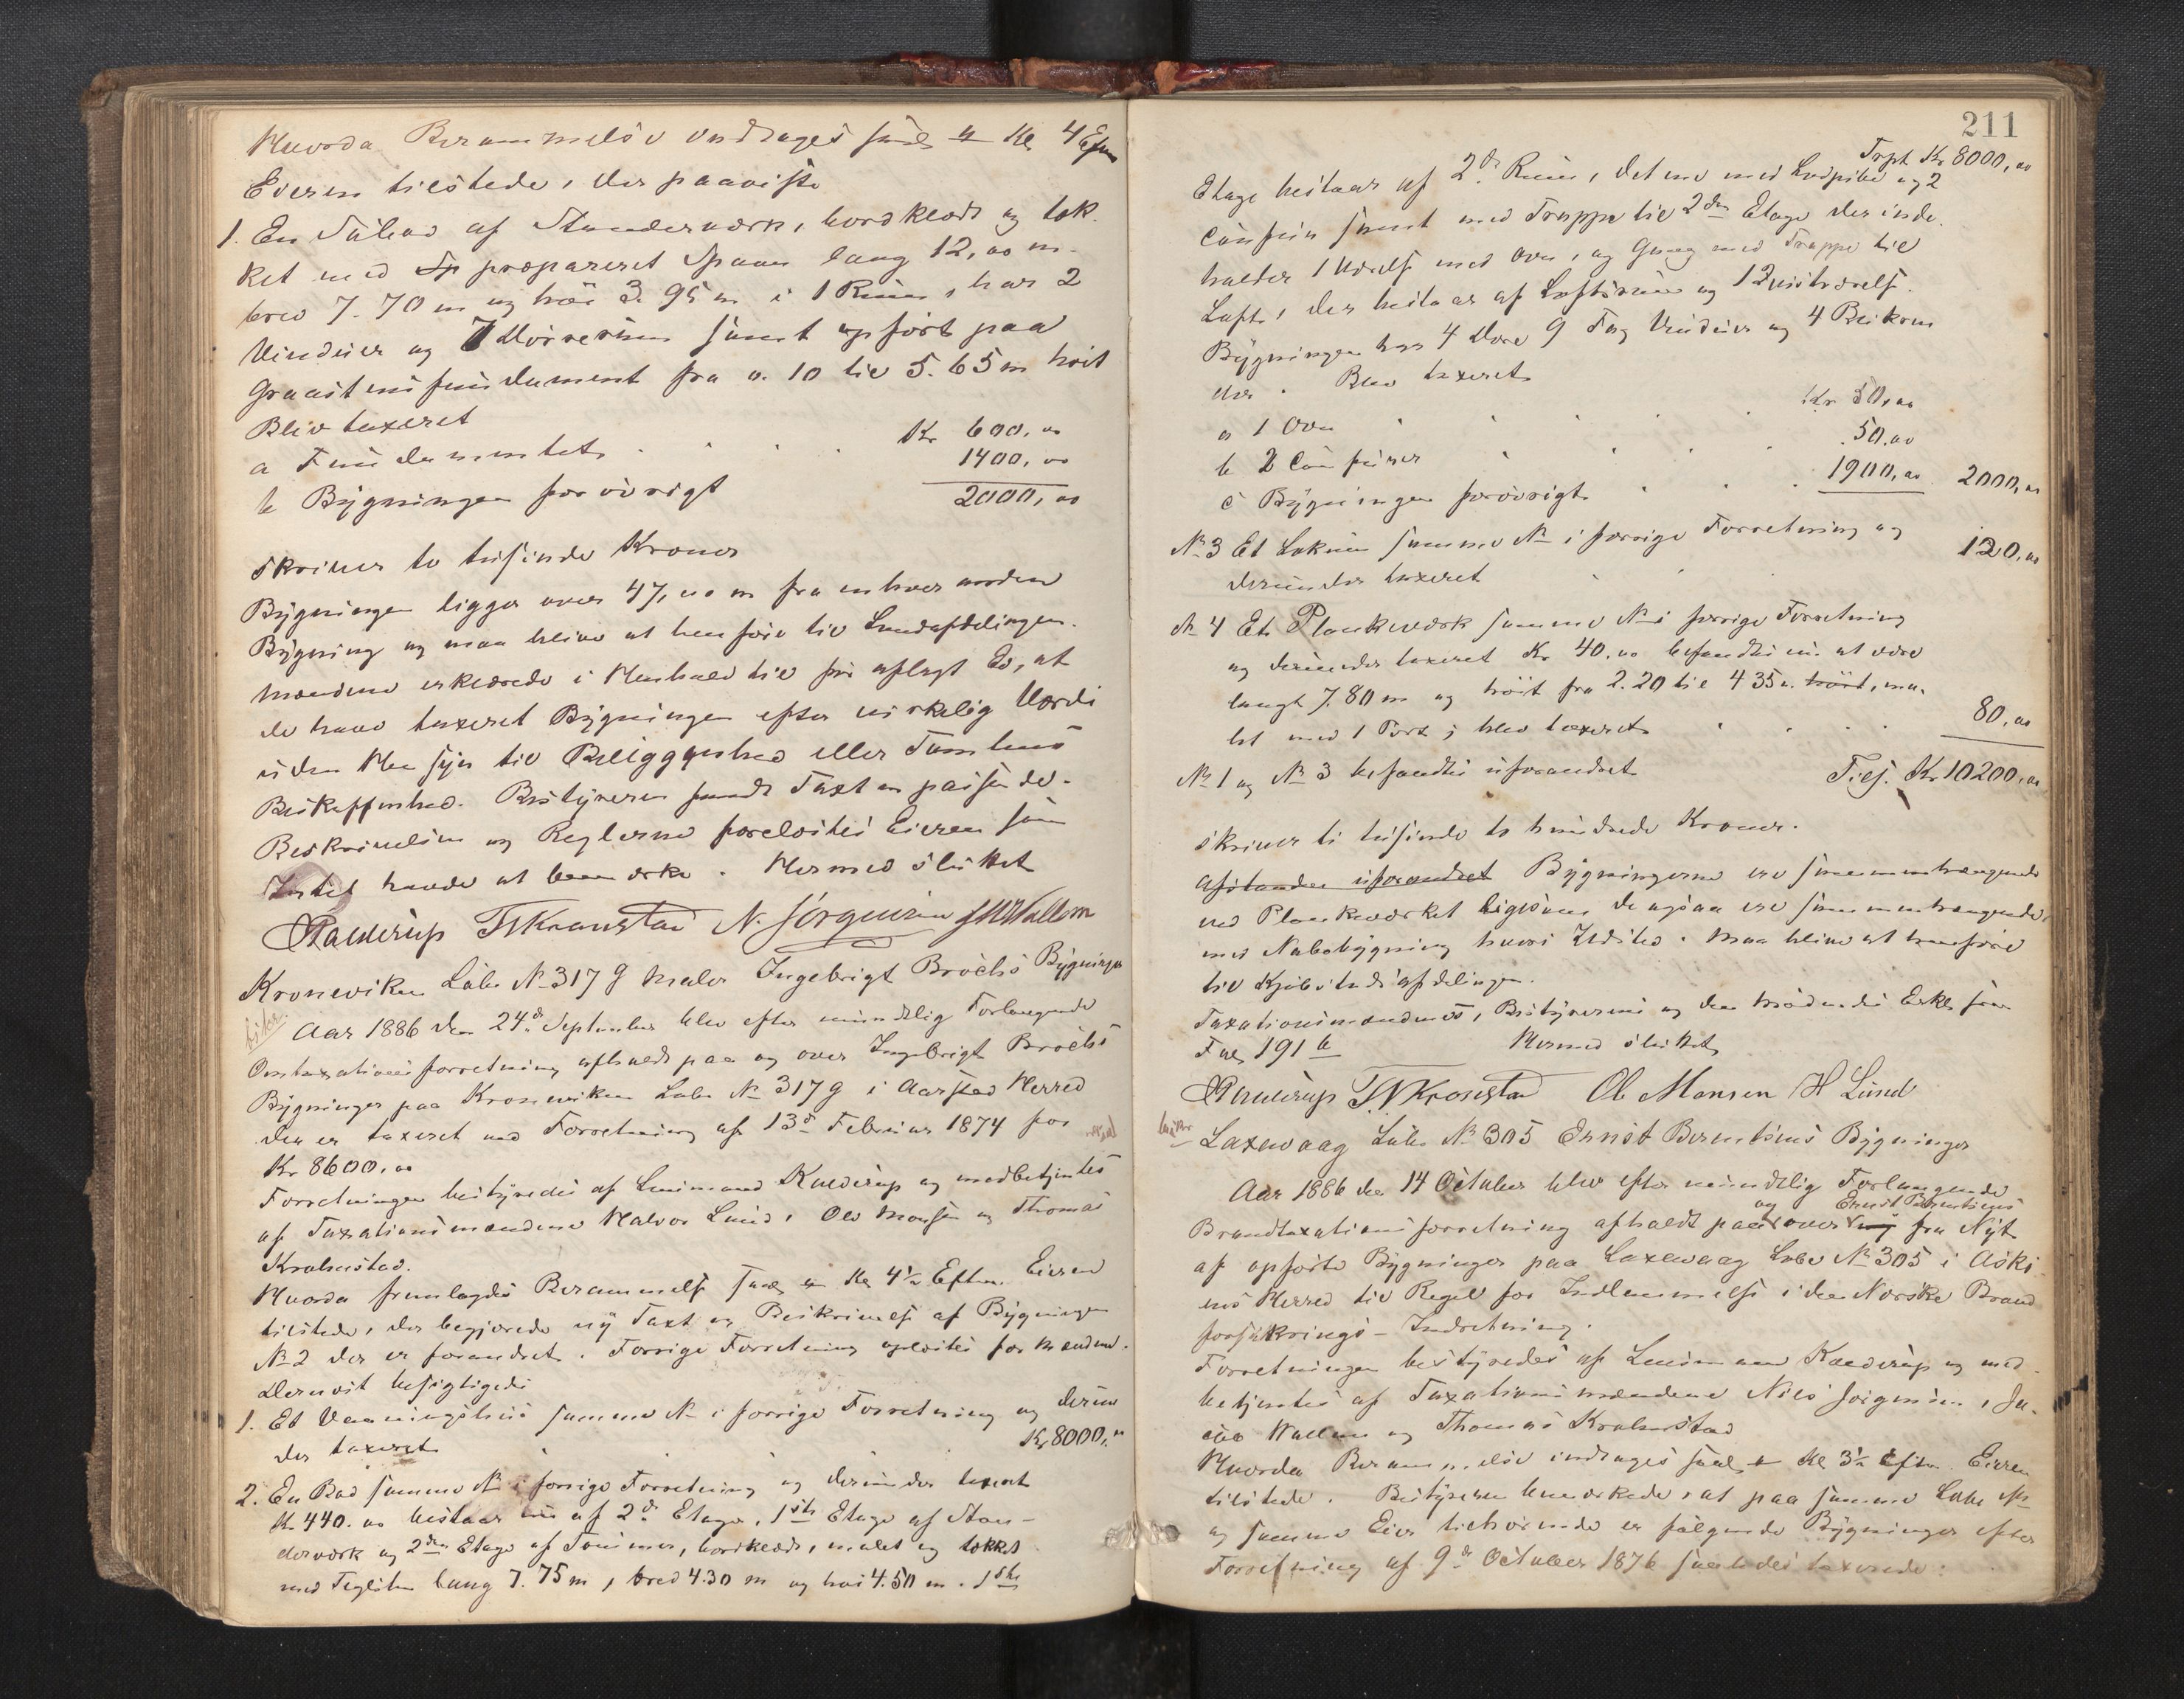 Hvorda Berammelsen inddroges sund. Kl 4 Efm
Eieren tilstede, der paaviste
1. En Søbod af Standerværk, bordklædt og tæk-
ket med præpareret Spaan lang 12,00 m.
bred 7.70 m og høi 3.95 m i 1 Rum, har 2
Vinduer og 7 Dørre samt opført paa
Graastensfundament fra 0.10 til 5.65 m høit
Blev taxeret
a Fundamentet . . . Kr 600,00
b Bygningen forøvrigt 1400,00
2000,00
skriver to tusinde Kroner
Bygningen ligger over 47,00 m fra enhver anden
Bygning og maa blive at henføre til Landafdelingen.
Mændene erklærede i Henhold til før aflagt Ed, at
de have taxeret Bygningen efter virkelig Værdi
uden Hensyn til Beliggenhed eller Tomtens
Beskaffenhed. Bestyreren fandt Taxten passende.
Beskrivelsen og Reglerne forelæstes Eieren som
Intet havde at bemærke. Hermed sluttet
Kaverup T Krohnstad N. Jørgensen J Wallem
Kronviken Løbe No 317 g Maler Ingebrigt Brochs Bygninger
Aar 1886 den 24de September blev efter mundtlig Forlangende
Omtaxationsforretning afholdt paa og over Ingebrigt Brochs
Bygninger paa Kronviken Løbe No 317 g i Aarstad Herred
der er taxeret ved Forretning af 13de Februar 1874 for
Kr 8600.00
Forretningen bestyredes af Lensmand Kaverup og medbetjentes
af Taxationsmændene Halvor Lund, Ole Monsen og Thomas
Krohnstad.
Hvorda fremlagdes Berammelse Kl 4½ Efterm. Eieren
tilstede, der begjærede ny Taxt og Beskrivelse af Bygningen
No 2 der er forandret. Forrige Forretning oplæstes for Mændene.
Dernæst besigtigedes
1. Et Vaaningshus samme No i forrige Forretning og derun-
der taxeret . . . Kr 8000,00
2. En Bod samme No i forrige Forretning og derunder taxeret
Kr 440.00 bestaar nu af 2de Etager, 1ste Etage af Stan-
derværk og 2den Etage af Tømmer, bordklædt, malet og tækket
med Teglsten lang 7.75 m, bred 4.30 m og høi 4.50 m. 1ste
211
Trpt Kr 8000,00
Etage bestaar af 2de Rum, det ene med Ludpibe og 2
Comfurer samt med Trappe til 2den Etage der inde-
holder 1 Værelse med Ovn, og Gang med Trappe til
Loft, der bestaar af Loftsrum og 1 Qvistværelse.
Bygningen har 4 Døre 9 Fag Vinduer og 4 Beikom
der. Blev taxeret
a 1 Ovn . . . Kr 50,00
b 2 Comfurer . . . 50,00
c Bygningen forøvrigt . . . 1900,00 2000,00
No 3 Et Lokum samme No i forrige Forretning og
derunder taxeret . . . 120,00
No 4 Et Plankeværk samme No i forrige Forretning
og derunder taxeret Kr 40.00 befandtes nu at være
langt 7.80 m og høit fra 2.20 til 4.35 m høit, ma-
let med 1 Port; blev taxeret . . . 80,00
No 1 og No 3 befandtes uforandret Tils. Kr 10200,00
skriver ti tusinde to hundrede Kroner.
Afstanden uforandret Bygningerne ere sammenhængende
ved Plankeværket ligesom de ogsaa ere sammenhængende
med Nabobygning hvori Ildsted. Maa blive at henføre
til Kjøbstadsafdelingen.
Taxationsmændenes, Bestyrerens og den mødendes Erkl. som
Fol 191 b Hermed sluttet
Kaverup T. Krohnstad Ole Monsen H Lund
Laxevaag Løbe No 305 Ernst Berentsens Bygninger
Aar 1886 den 14 October blev efter mundtlig Forlangende
og Ernst Berentsens
Brandtaxationsforretning afholdt paa over fra Nyt
af opførte Bygninger paa Laxevaag Løbe No 305 i Aski
ens Herred til Regel for Indlemmelse i den Norske Brand
forsikrings-Indretning.
Forretningen bestyredes af Lensmand Kaverup og med-
betjentes af Taxationsmændene Nils Jørgensen, Ja-
cob Wallem og Thomas Krohnstad
Hvorda Berammelsen inddroges Kl 3½ Efterm. Eieren
tilstede. Bestyreren bemærkede, at paa samme Løbe No
og samme Eier tilhørende er følgende Bygninger efter
Forretning af 9de October 1876 saaledes taxerede: